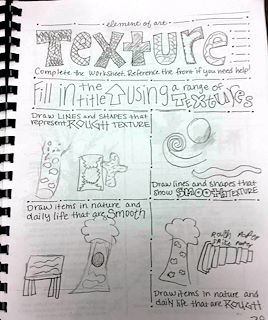 element of art
Texture
Complete the worksheet. Reference the front if you need help!
Fill in the title ↑ using a range of TEXTURES
Draw LINES and SHAPES that
represent ROUGH TEXTURE
Draw lines and shapes that
show SMOOTH TEXTURE
Draw items in nature and
daily life that are SMOOTH
Draw items in nature and
daily life that are ROUGH